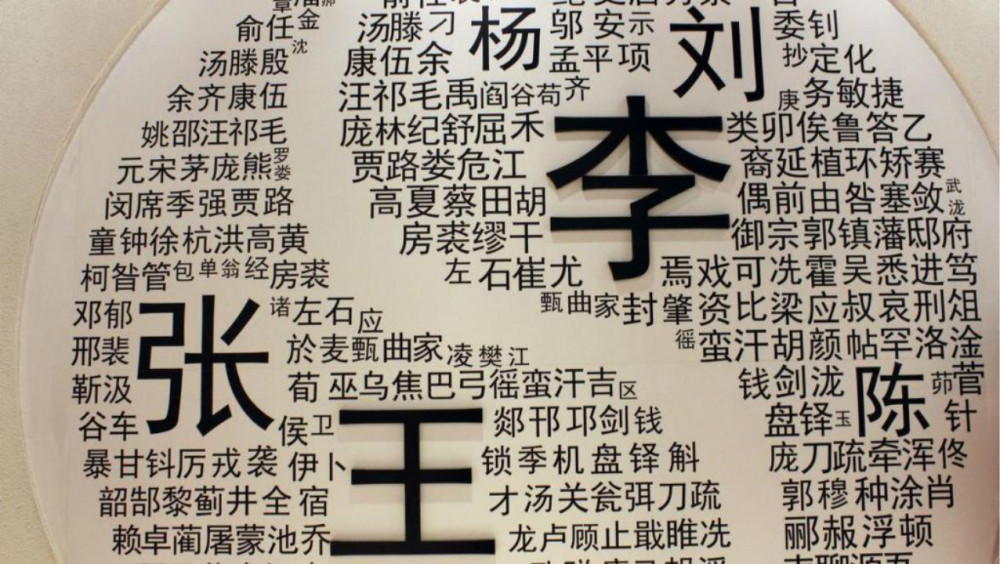 俞任金
汤滕刁
杨
邬安示
刘
委钊
沈
汤滕殷
康伍余
孟平项
抄定化
余齐康伍
汪祁毛禹阎谷荀齐
庚务敏捷
姚邵汪祁毛
庞林纪舒屈禾
李
类卯俟鲁答乙
元宋茅庞熊罗娄
贾路娄危江
裔延植环矫赛
闵席季强贾路
高夏蔡田胡
偶前由咎塞敛武泷
童钟徐杭洪高黄
房裘缪干
御宗郭镇藩邸府
柯昝管包单翁经房裘
左石崔尤
焉戏可冼霍吴悉进笃
邓郁
张
诸左石应
甄曲家封肇资比梁应叔哀刑俎
邢裴
於麦甄曲家凌樊江
徭蛮汗胡颜帖罕洛淦
靳汲
荀巫乌焦巴弓徭蛮汗吉区
钱剑泷
陈
茆菅
谷车
侯卫
王
郯邗邛剑钱
盘铎玉
针
暴甘钭厉戎袭伊卜
锁季机盘铎斛
庞刀疏牵浑佟
韶郜黎蓟井全宿
才汤关瓮弭刀疏
郭穆种涂肖
赖卓蔺屠蒙池乔
龙卢顾止戢睢冼
郦赧浮顿